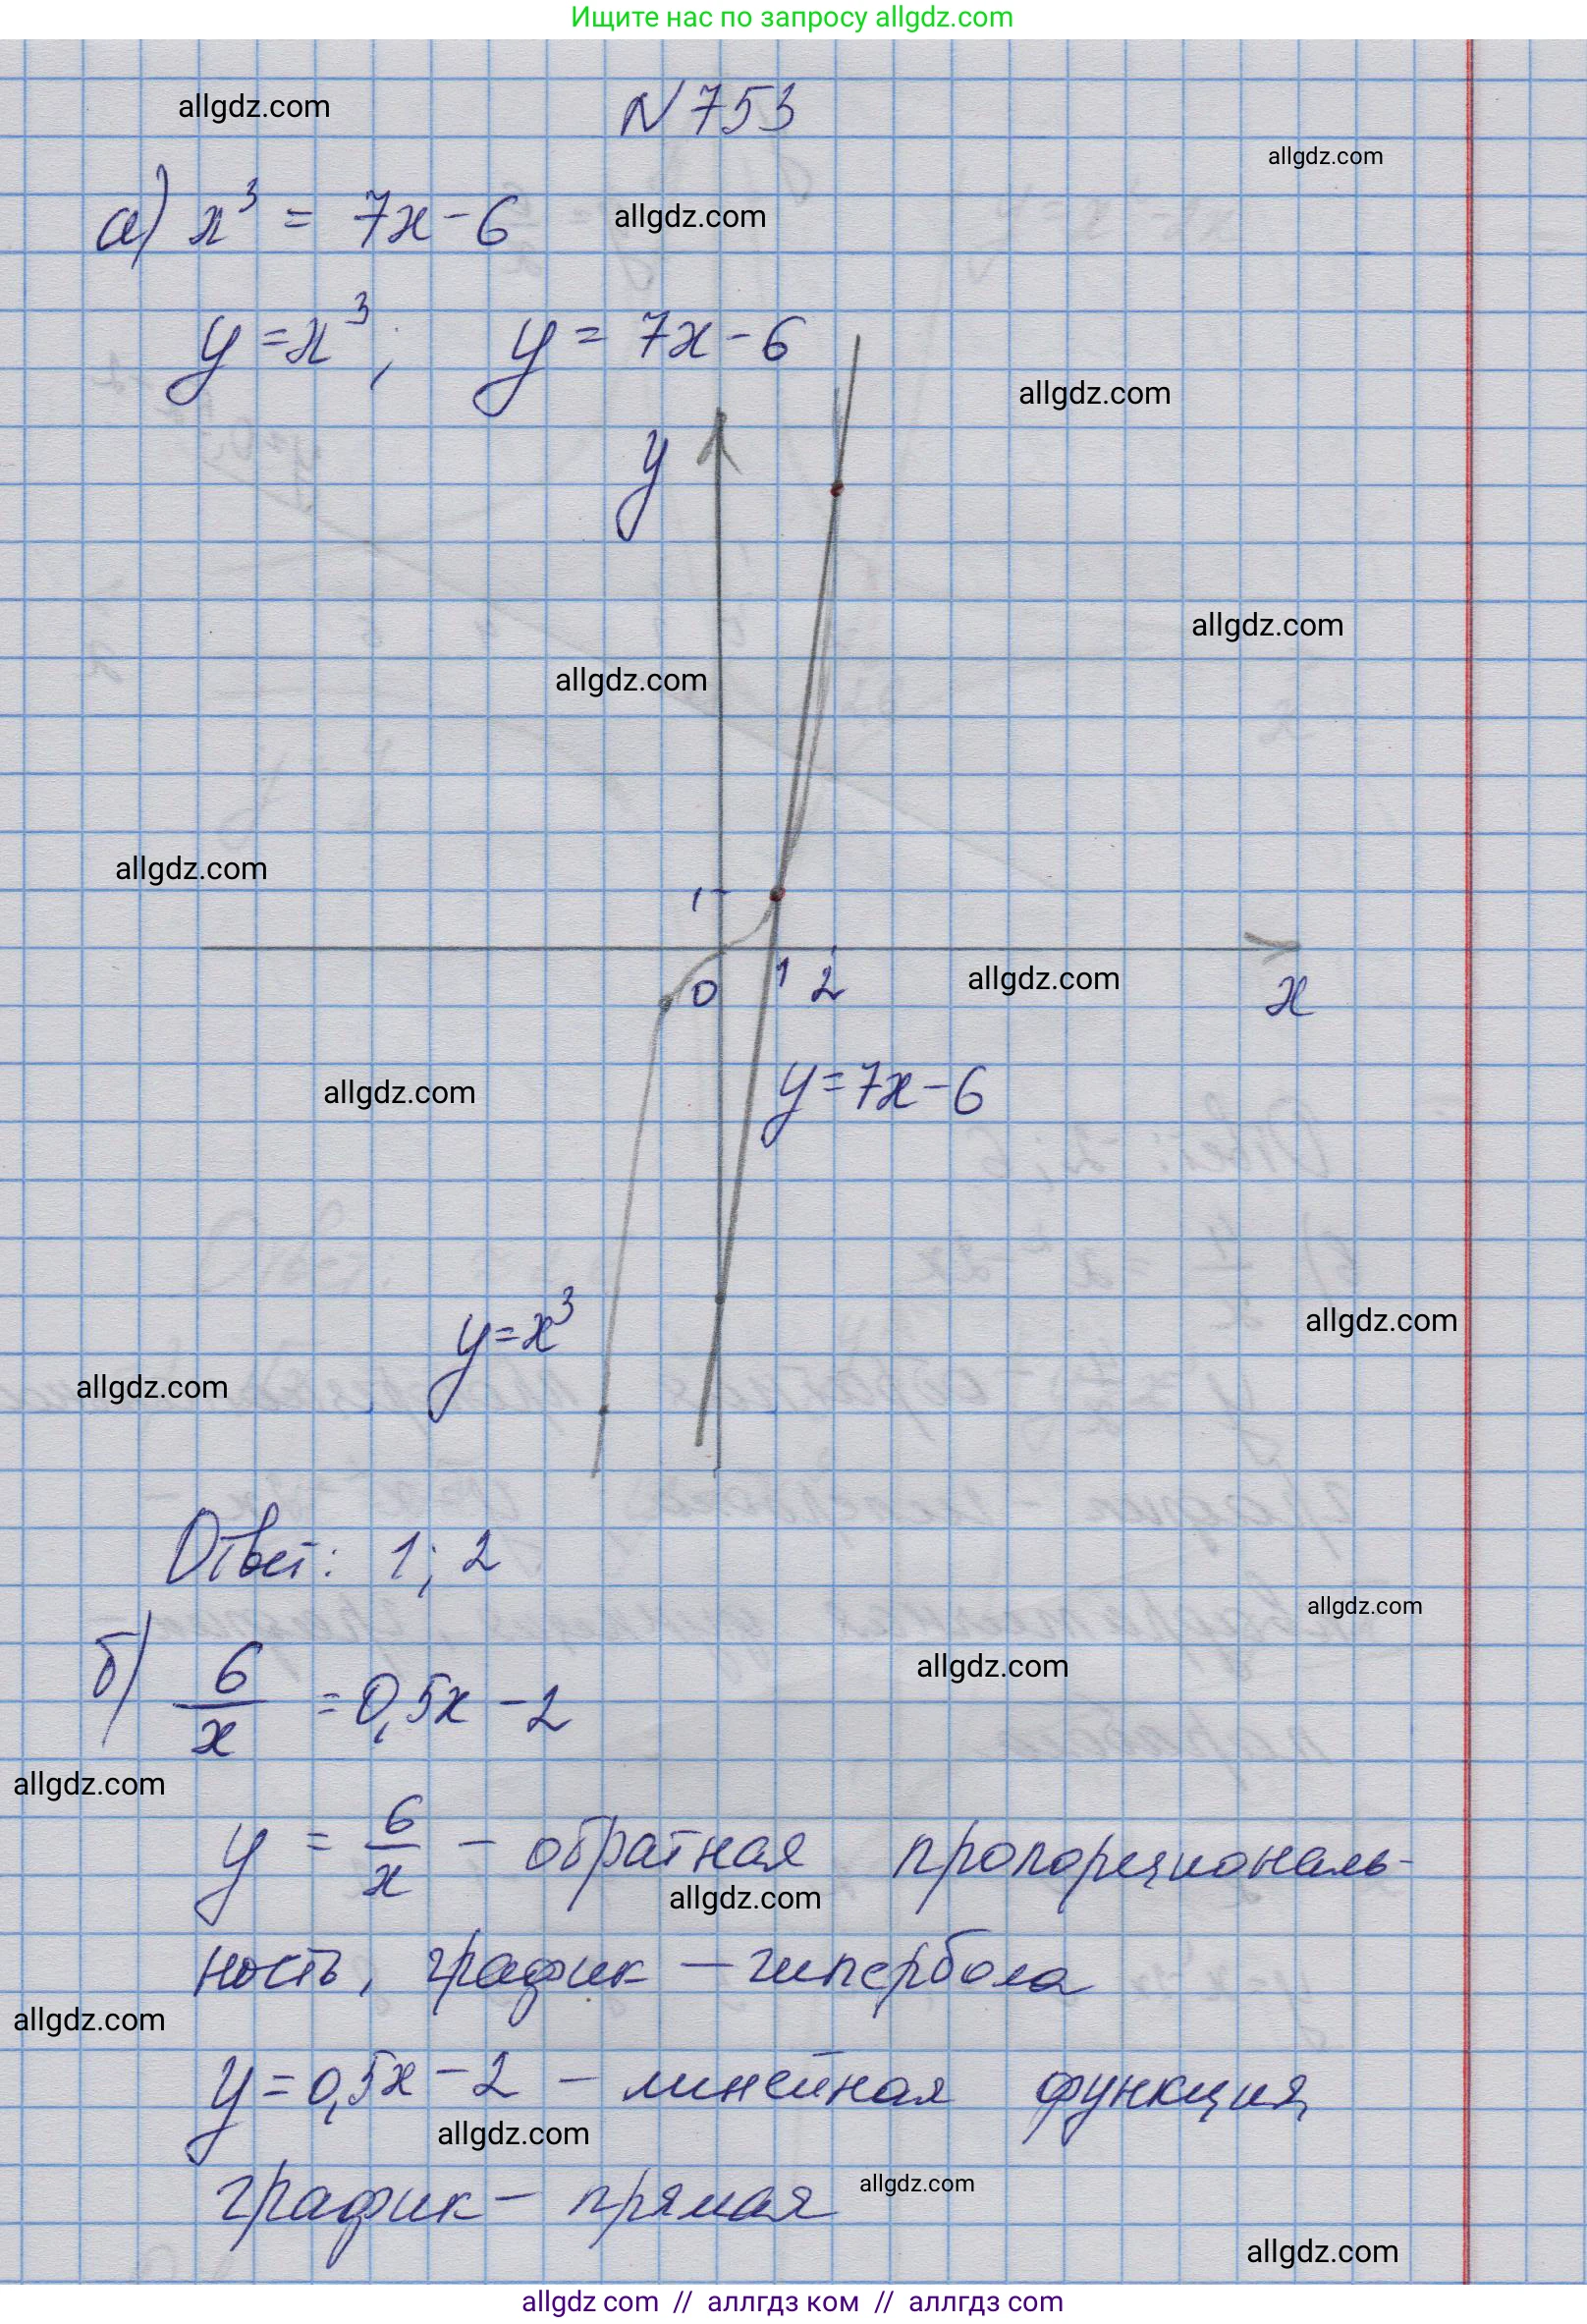 Ищите нас по запросу allgdz.com
allgdz.com
N 753
allgdz.com
а) x³ = 7x - 6
allgdz.com
y = x³, y = 7x - 6
allgdz.com
y
allgdz.com
allgdz.com
allgdz.com
1
0 1 2
allgdz.com
x
y = 7x - 6
allgdz.com
y = x³
allgdz.com
allgdz.com
Ответ: 1; 2
allgdz.com
б) 6/x = 0,5x - 2
allgdz.com
allgdz.com
y = 6/x - обратная пропорциональ-
allgdz.com
ность, график - гипербола
allgdz.com
y = 0,5x - 2 - линейная функция,
allgdz.com
график - прямая
allgdz.com
allgdz.com
allgdz com // аллгдз ком // аллгдз com